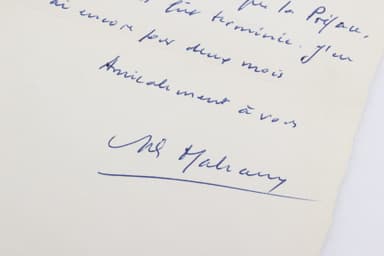 que la Préface,
fût terminée. J'en
ai encore pour deux mois
Amicalement à vous